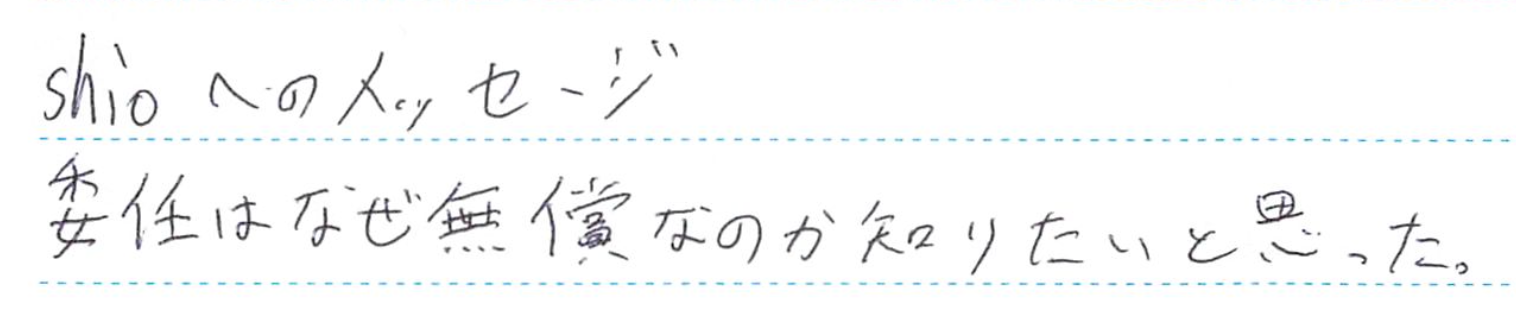 shioへのメッセージ
委任はなぜ無償なのか知りたいと思った。